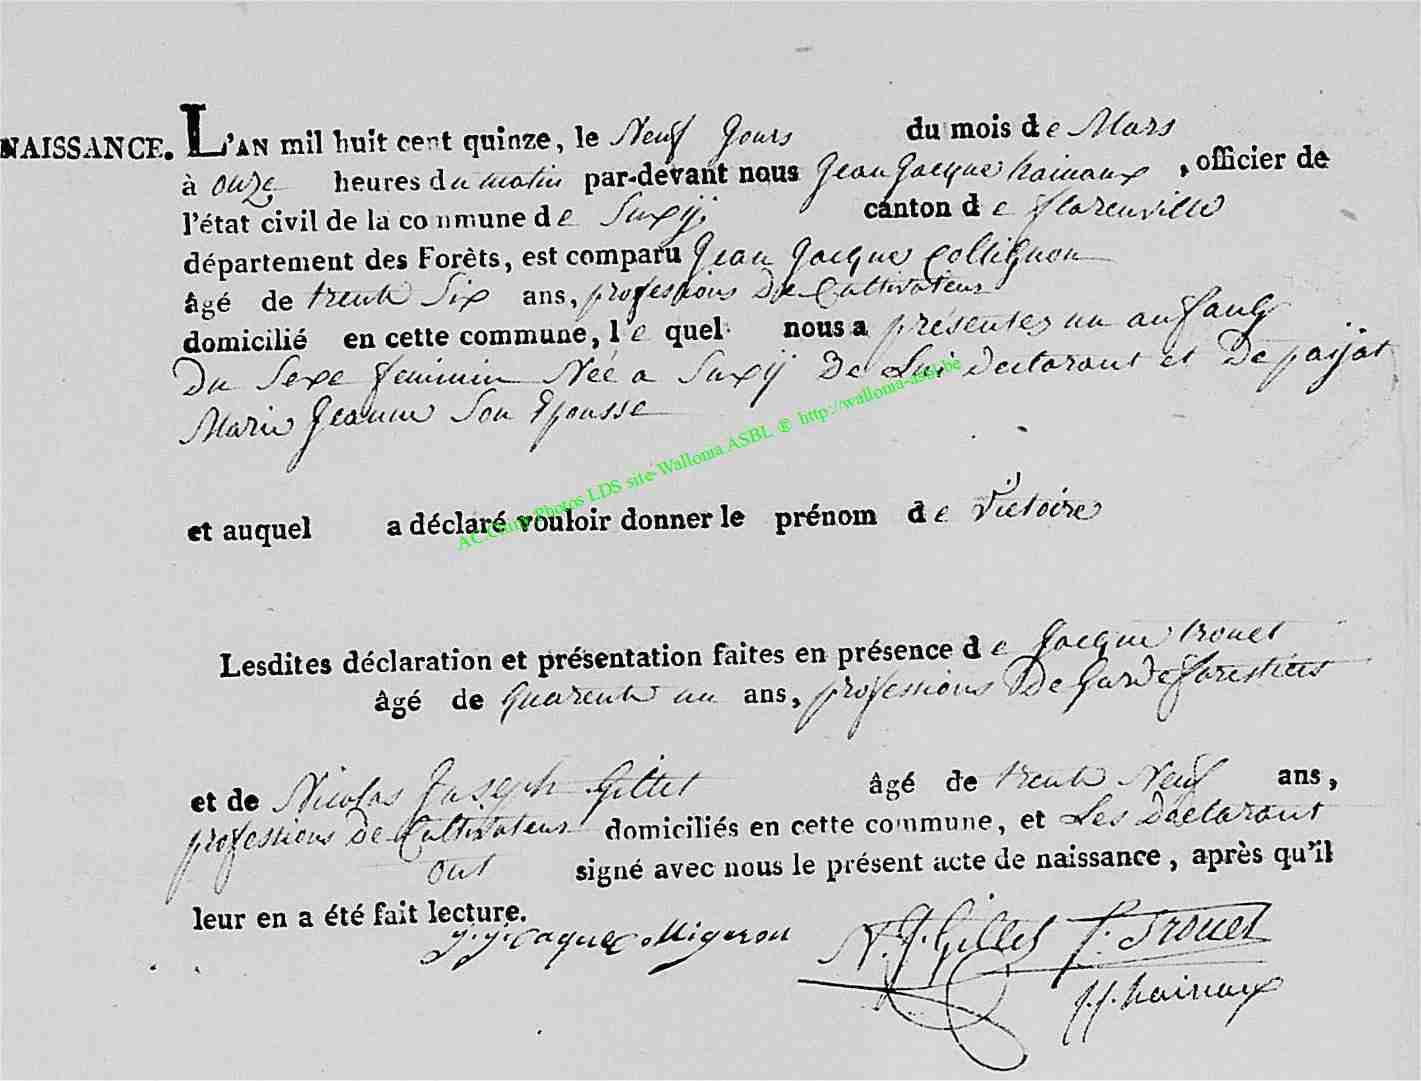 NAISSANCE. L'AN mil huit cent quinze, le Neuf Jours du mois de Mars
à onze heures du matin par-devant nous Jean Jacque hainaux, officier de
l'état civil de la commune de Suxÿ canton de florenville
département des Forêts, est comparu Jean Jacque Collignon
âgé de trente Six ans, professions De Cultivateur
domicilié en cette commune, lequel nous a présentez un anfang
Du Sexe feminin Née a Suxÿ De Lui declarant et De paÿat
Marie Jeanne Son Epousse
AC: Photos LDS site-Wallonia ASBL ® http://wallonia-asbl.be
et auquel a déclaré vouloir donner le prénom de Victoire
Lesdites déclaration et présentation faites en présence de Jacque trouet
âgé de quarente un ans, professions De Garde forestiers
et de Nicolas Joseph Gillet âgé de trente Neuf ans,
professions De Cultivateur domiciliés en cette commune, et Les Declarant
ont signé avec nous le présent acte de naissance, après qu'il
leur en a été fait lecture.
N.J. Gillet J. Trouet
J.J. hainaux